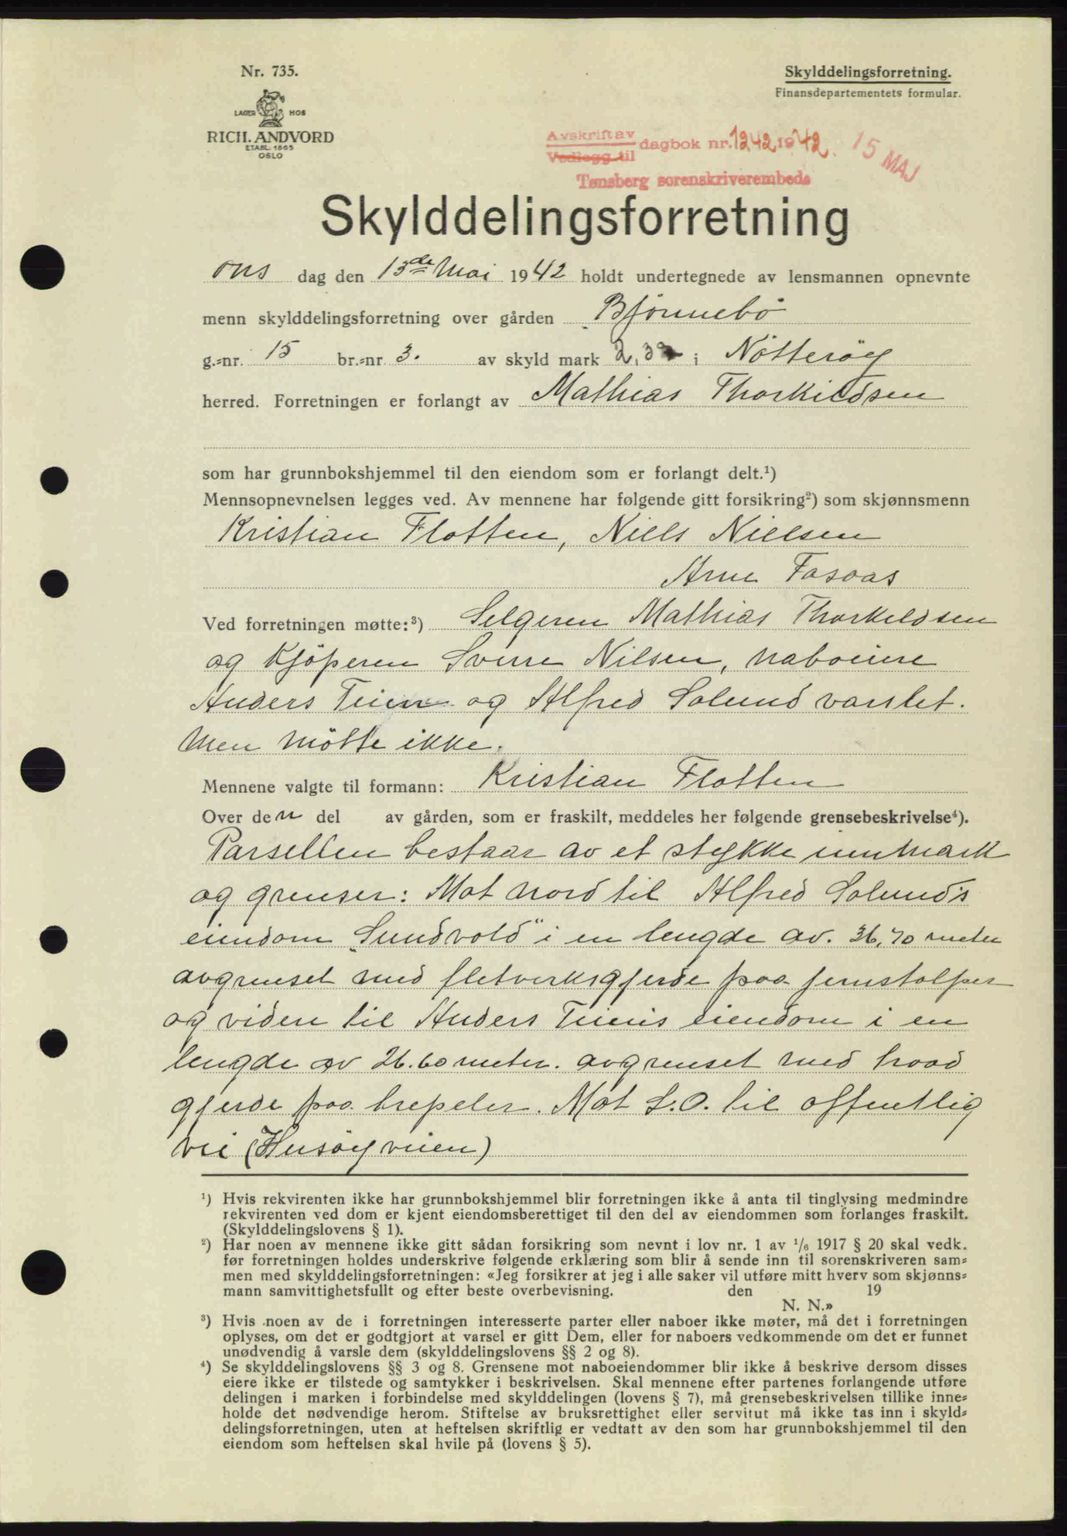 Nr. 735.
LAGER HOS
RICH. ANDVORD
ETABL. 1865
OSLO
Skylddelingsforretning.
Finansdepartementets formular.
Avskrift av
Vedlegg til dagbok nr. 1242 1942. 15 MAJ
Tønsberg sorenskriverembede
Skylddelingsforretning
ons dag den 13de Mai 1942 holdt undertegnede av lensmannen opnevnte
menn skylddelingsforretning over gården Bjönnebö
g.-nr. 15 br.-nr. 3. av skyld mark 2,39 i Nötteröy
herred. Forretningen er forlangt av Mathias Thorkildsen
som har grunnbokshjemmel til den eiendom som er forlangt delt.¹)
Mennsopnevnelsen legges ved. Av mennene har følgende gitt forsikring²) som skjønnsmenn
Kristian Flotten, Niels Nielsen
Arne Fasoas
Ved forretningen møtte:³) Selgeren Mathias Thorkeldsen
og Kjöperen Sverre Nilsen, naboeiere
Anders Teien og Alfred Solund varslet.
Men mötte ikke.
Mennene valgte til formann: Kristian Flotten
Over den del av gården, som er fraskilt, meddeles her følgende grensebeskrivelse⁴).
Parsellen bestaar av et stykke innmark
og grenser: Mot nord til Alfred Solund's
eiendom „Sundvold" i en lengde av. 36,70 meter
avgrenset med fletverksgjerde paa jernstolper
og videre til Anders Teiens eiendom i en
lengde av 26.60 meter. avgrenset med traad
gjerde paa trepeler. Mot S.O. til offentlig
vei (Husöy veien)
¹) Hvis rekvirenten ikke har grunnbokshjemmel blir forretningen ikke å anta til tinglysing medmindre
rekvirenten ved dom er kjent eiendomsberettiget til den del av eiendommen som forlanges fraskilt.
(Skylddelingslovens § 1).
²) Har noen av mennene ikke gitt sådan forsikring som nevnt i lov nr. 1 av 1/6 1917 § 20 skal vedk.
før forretningen holdes underskrive følgende erklæring som blir å sende inn til sorenskriveren sam-
men med skylddelingsforretningen: «Jeg forsikrer at jeg i alle saker vil utføre mitt hverv som skjønns-
mann samvittighetsfullt og efter beste overbevisning. den 19
N. N.»
³) Hvis noen av de i forretningen interesserte parter eller naboer ikke møter, må det i forretningen
oplyses, om det er godtgjort at varsel er gitt Dem, eller for naboers vedkommende om det er funnet
unødvendig å varsle dem (skylddelingslovens §§ 2 og 8).
⁴) Se skylddelingslovens §§ 3 og 8. Grensene mot naboeiendommer blir ikke å beskrive dersom disses
eiere ikke er tilstede og samtykker i beskrivelsen. Skal mennene efter partenes forlangende utføre
delingen i marken i forbindelse med skylddelingen (lovens § 7), må grensebeskrivelsen tillike inne-
holde det nødvendige herom. Stiftelse av bruksrettighet eller servitut må ikke tas inn i skyld-
delingsforretningen, uten at heftelsen skriftlig er vedtatt av den som har grunnbokshjemmel til den
eiendom som heftelsen skal hvile på (lovens § 5).